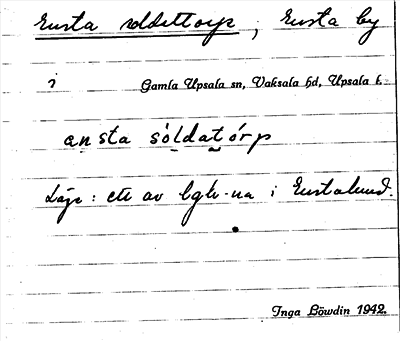 Ensta soldattorp, Ensta by
i Gamla Upsala sn, Vaksala hd, Upsala l.
ansta sóldatórp
Läge: ett av lgh-na i Enstalund.
Inga Löwdin 1942.